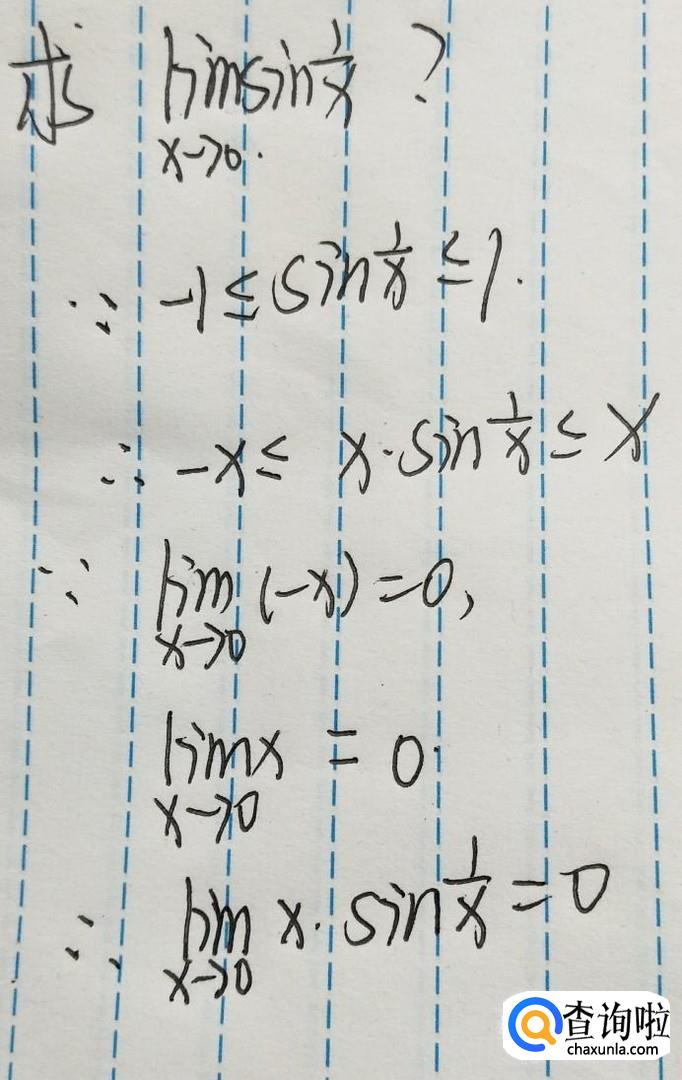 求 lim sin 1/x ?
x→0.
∵ -1 ≤ sin 1/x ≤ 1.
∴ -x ≤ x·sin 1/x ≤ x
∵ lim (-x) = 0,
x→0
lim x = 0.
x→0
∴ lim x·sin 1/x = 0
x→0
查询啦
chaxunla.com